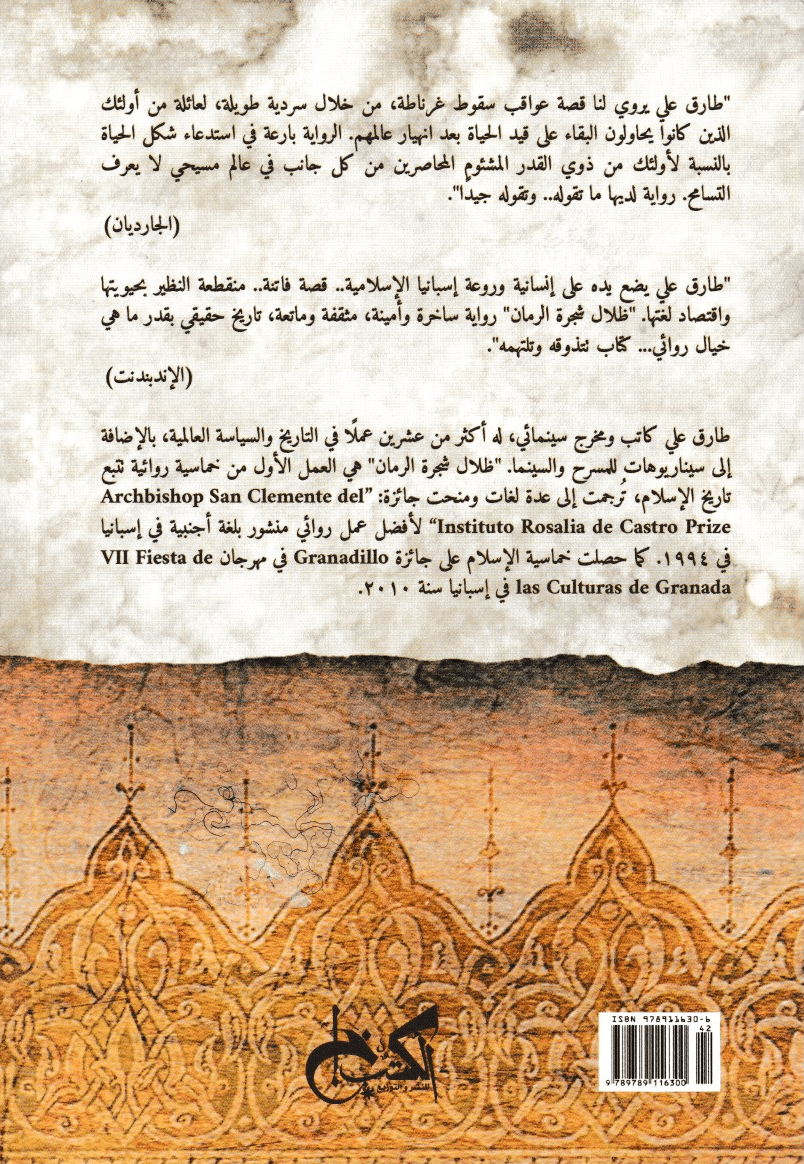 "طارق علي يروي لنا قصة عواقب سقوط غرناطة، من خلال سردية طويلة، لعائلة من أولئك
الذين كانوا يحاولون البقاء على قيد الحياة بعد انهيار عالمهم. الرواية بارعة في استدعاء شكل الحياة
بالنسبة لأولئك من ذوي القدر المشئوم المحاصرين من كل جانب في عالم مسيحي لا يعرف
التسامح. رواية لديها ما تقوله.. وتقوله جيدًا".
(الجارديان)
"طارق علي يضع يده على إنسانية وروعة إسبانيا الإسلامية.. قصة فاتنة.. منقطعة النظير بحيويتها
واقتصاد لغتها. "ظلال شجرة الرمان" رواية ساخرة وأمينة، مثقفة وماتعة، تاريخ حقيقي بقدر ما هي
خيال روائي... كتاب نتذوقه ونلتهمه".
(الإندبندنت)
طارق علي كاتب ومخرج سينمائي، له أكثر من عشرين عملًا في التاريخ والسياسة العالمية، بالإضافة
إلى سيناريوهات للمسرح والسينما. "ظلال شجرة الرمان" هي العمل الأول من خماسية روائية تتبع
تاريخ الإسلام، تُرجمت إلى عدة لغات ومنحت جائزة: "Archbishop San Clemente del
Instituto Rosalia de Castro Prize" لأفضل عمل روائي منشور بلغة أجنبية في إسبانيا
في ١٩٩٤. كما حصلت خماسية الإسلام على جائزة Granadillo في مهرجان VII Fiesta de
las Culturas de Granada في إسبانيا سنة ٢٠١٠.
الكتب خان
للنشر والتوزيع
ISBN 978911630-6
42
9 789789 116300